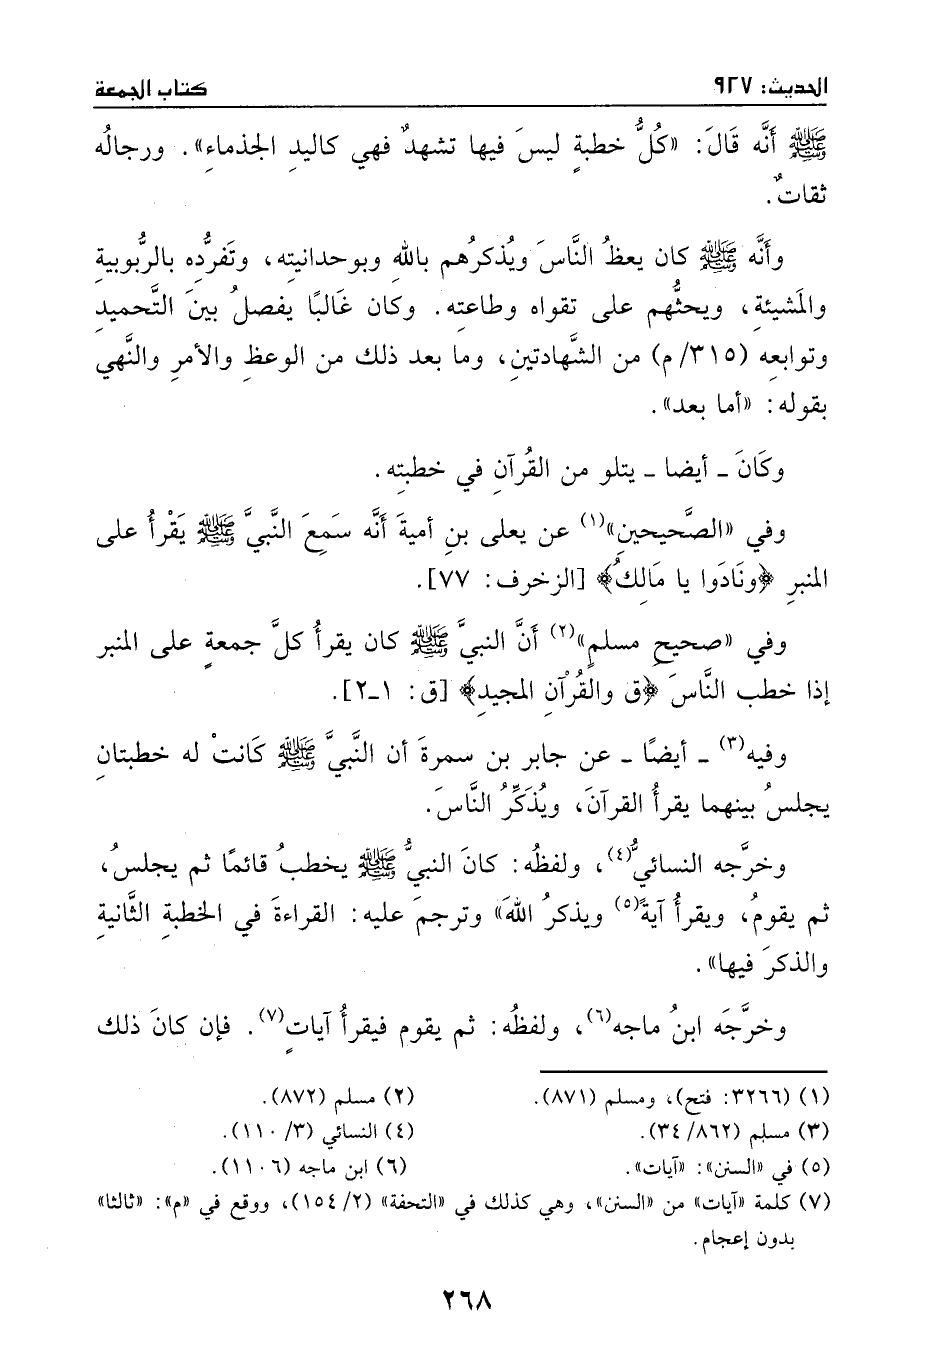 الحديث: ٩٢٧ كتاب الجمعة
ﷺ أَنَّه قَالَ: «كُلُّ خطبةٍ ليسَ فيها تشهدٌ فهي كاليدِ الجذماءِ». ورجالُه
ثقاتٌ.
وأنَّه ﷺ كان يعظُ النَّاسَ ويُذكرُهم باللهِ وبوحدانيتِه، وتَفرُّدِه بالرُّبوبيةِ
والمَشيئةِ، ويحثُّهم على تقواه وطاعتِه. وكان غَالبًا يفصلُ بينَ التَّحميدِ
وتوابعِه (٣١٥/م) من الشَّهادتينِ، وما بعد ذلك من الوعظِ والأمرِ والنَّهي
بقوله: «أما بعد».
وكَانَ ـ أيضا ـ يتلو من القُرآنِ في خطبتِه.
وفي «الصَّحيحينِ»(١) عن يعلى بنِ أميةَ أنَّه سَمِعَ النَّبيَّ ﷺ يَقْرأُ على
المنبرِ ﴿ونَادَوا يا مَالِكُ﴾ [الزخرف: ٧٧].
وفي «صحيحِ مسلمٍ»(٢) أَنَّ النبيَّ ﷺ كان يقرأُ كلَّ جمعةٍ على المنبر
إذا خطب النَّاسَ ﴿ق والقُرْآنِ المجيدِ﴾ [ق: ١ـ٢].
وفيه(٣) ـ أيضًا ـ عن جابر بن سمرةَ أن النَّبيَّ ﷺ كَانتْ له خطبتانِ
يجلسُ بينهما يقرأُ القرآنَ، ويُذَكِّرُ النَّاسَ.
وخرَّجه النسائيُّ(٤)، ولفظُه: كانَ النبيُّ ﷺ يخطبُ قائمًا ثم يجلسُ،
ثم يقومُ، ويقرأُ آيةً(٥) ويذكرُ اللهَ» وترجمَ عليه: القراءةَ في الخطبةِ الثَّانيةِ
والذكرَ فيها».
وخرَّجَه ابنُ ماجه(٦)، ولفظُه: ثم يقوم فيقرأُ آياتٍ(٧). فإن كانَ ذلك
(١) (٣٢٦٦: فتح)، ومسلم (٨٧١). (٢) مسلم (٨٧٢).
(٣) مسلم (٣٤/٨٦٢). (٤) النسائي (٣/ ١١٠).
(٥) في «السنن»: «آيات». (٦) ابن ماجه (١١٠٦).
(٧) كلمة «آيات» من «السنن»، وهي كذلك في «التحفة» (٢/ ١٥٤)، ووقع في «م»: «ثالثا»
بدون إعجام.
٢٦٨